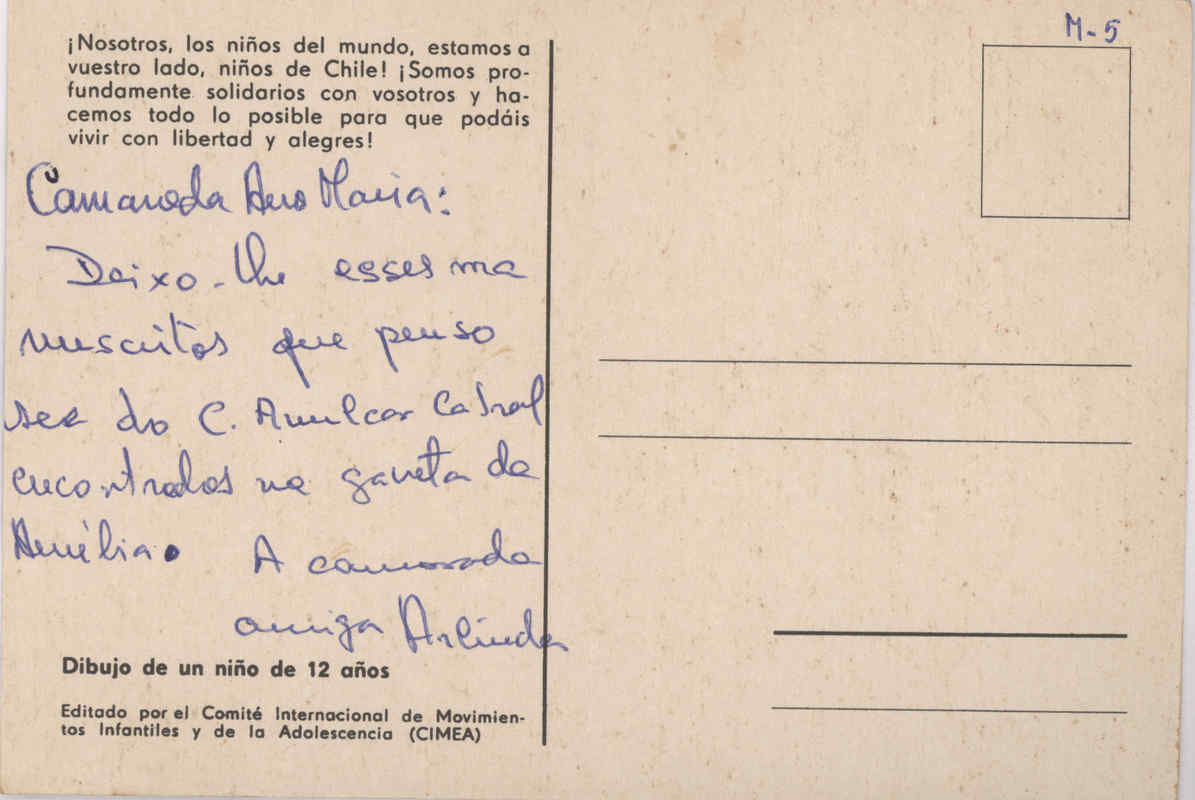 M-5
¡Nosotros, los niños del mundo, estamos a
vuestro lado, niños de Chile! ¡Somos pro-
fundamente solidarios con vosotros y ha-
cemos todo lo posible para que podáis
vivir con libertad y alegres!
Camarada Ana Maria:
Deixo-lhe esses ma
nuscritos que penso
ser do C. Amilcar Cabral
encontrados na gaveta da
Amélia.
A camarada
amiga Arlinda
Dibujo de un niño de 12 años
Editado por el Comité Internacional de Movimien-
tos Infantiles y de la Adolescencia (CIMEA)